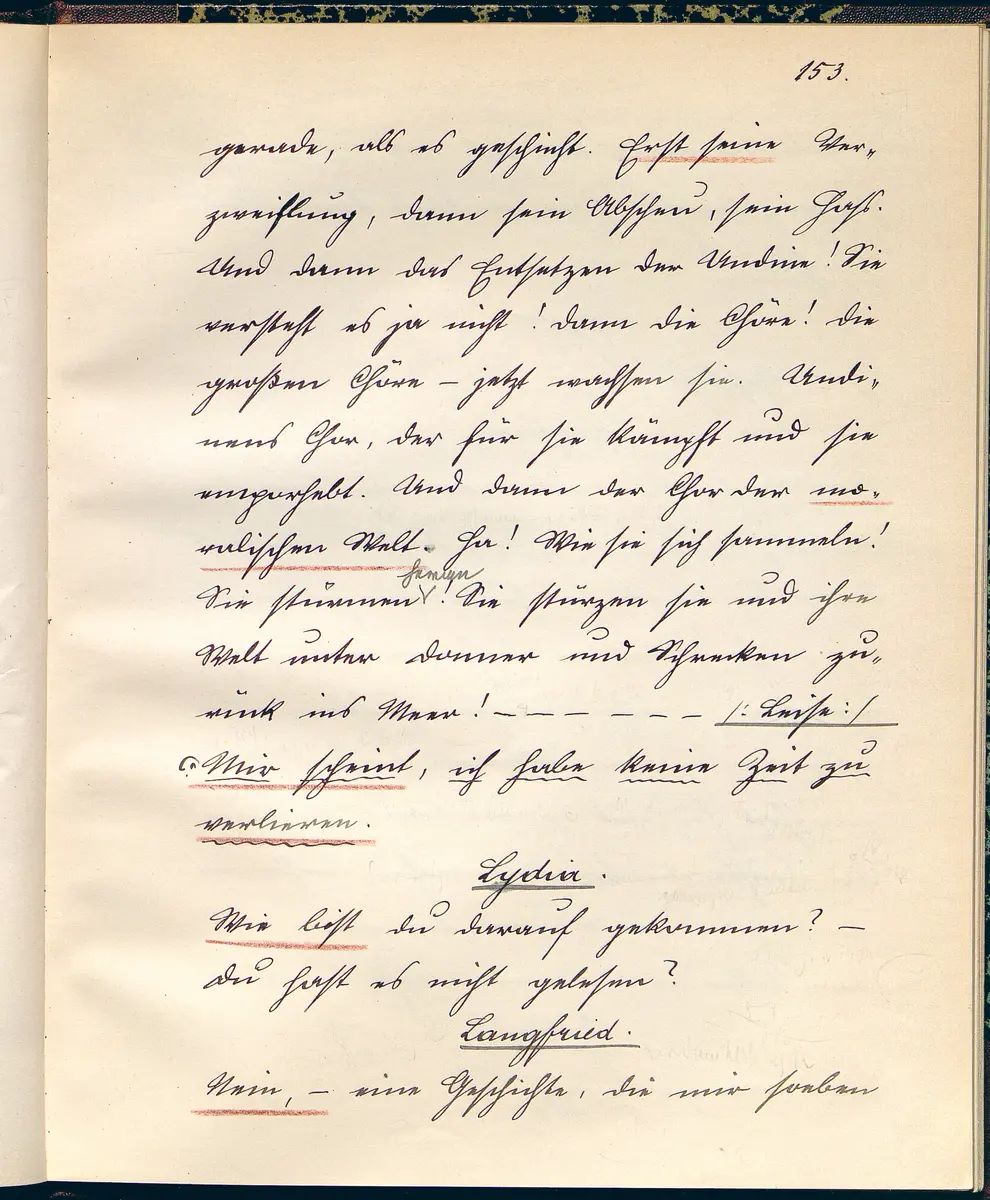 153.
gerade, als es geschieht. Erst seine Ver-
zweiflung, dann sein Abscheu, sein Haß.
Und dann das Entsetzen der Undine! Sie
versteht es ja nicht! Dann die Chöre! Die
großen Chöre – jetzt wachsen sie. Undi-
nens Chor, der für sie kämpft und sie
emporhebt. Und dann der Chor der mo-
ralischen Welt. Ha! Wie sie sich sammeln!
heran
Sie stürmen! Sie stürzen sie und ihre
Welt unter Donner und Schrecken zu-
rück ins Meer! – – – – – – – /: Leise :/
Mir scheint, ich habe keine Zeit zu
verlieren.
Lydia.
Wie bist du darauf gekommen? –
Du hast es nicht gelesen?
Langfried.
Nein, – eine Geschichte, die mir soeben